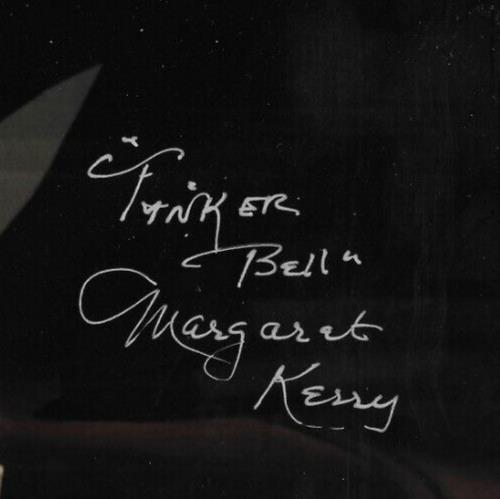 "TINKER
Bell"
Margaret
Kerry